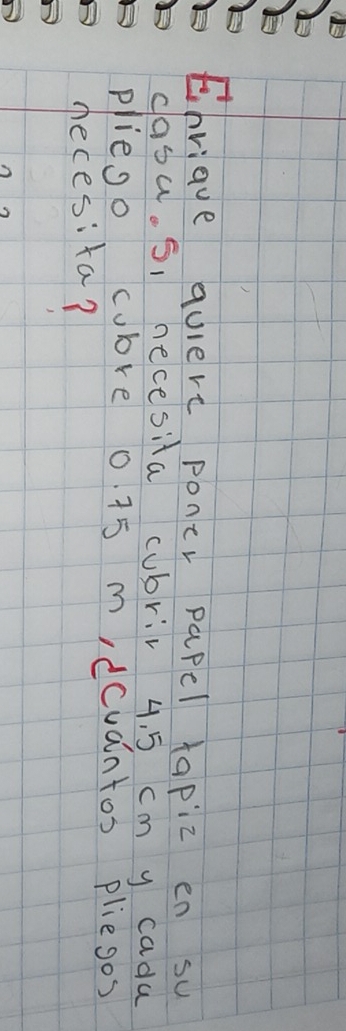 Enrique quiere poner papel tapiz en su
casa. Si necesita cubrir 4.5 cm y cada
pliego cubre 0.75 m, ¿Cuántos pliegos
necesita?